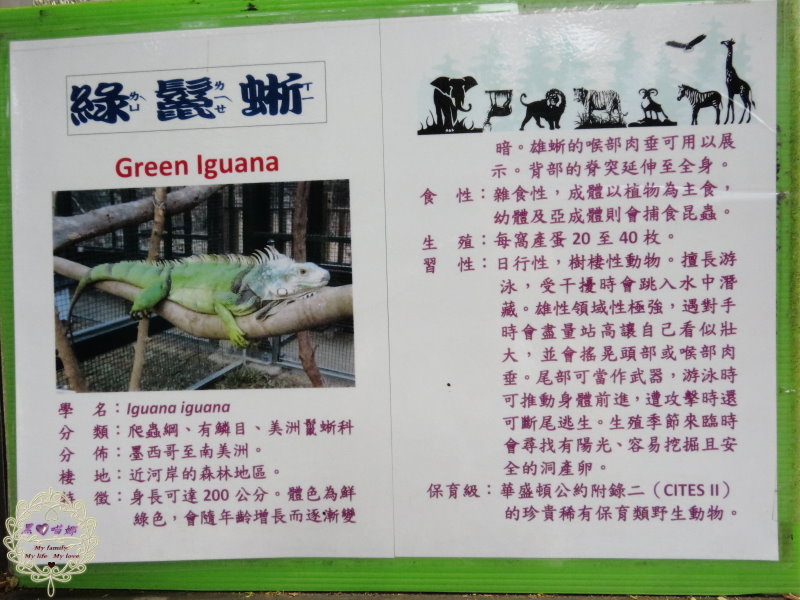 綠鬣蜥
ㄌㄩˋ ㄌㄧㄝˋ ㄒㄧ
Green Iguana
學 名：Iguana iguana
分 類：爬蟲綱、有鱗目、美洲鬣蜥科
分 佈：墨西哥至南美洲。
棲 地：近河岸的森林地區。
特 徵：身長可達 200 公分。體色為鮮
綠色，會隨年齡增長而逐漸變
暗。雄蜥的喉部肉垂可用以展
示。背部的脊突延伸至全身。
食 性：雜食性，成體以植物為主食，
幼體及亞成體則會捕食昆蟲。
生 殖：每窩產蛋 20 至 40 枚。
習 性：日行性，樹棲性動物。擅長游
泳，受干擾時會跳入水中潛
藏。雄性領域性極強，遇對手
時會盡量站高讓自己看似壯
大，並會搖晃頭部或喉部肉
垂。尾部可當作武器，游泳時
可推動身體前進，遭攻擊時還
可斷尾逃生。生殖季節來臨時
會尋找有陽光、容易挖掘且安
全的洞產卵。
保育級：華盛頓公約附錄二（CITES II）
的珍貴稀有保育類野生動物。
黑 喵娜
My family
My life My love